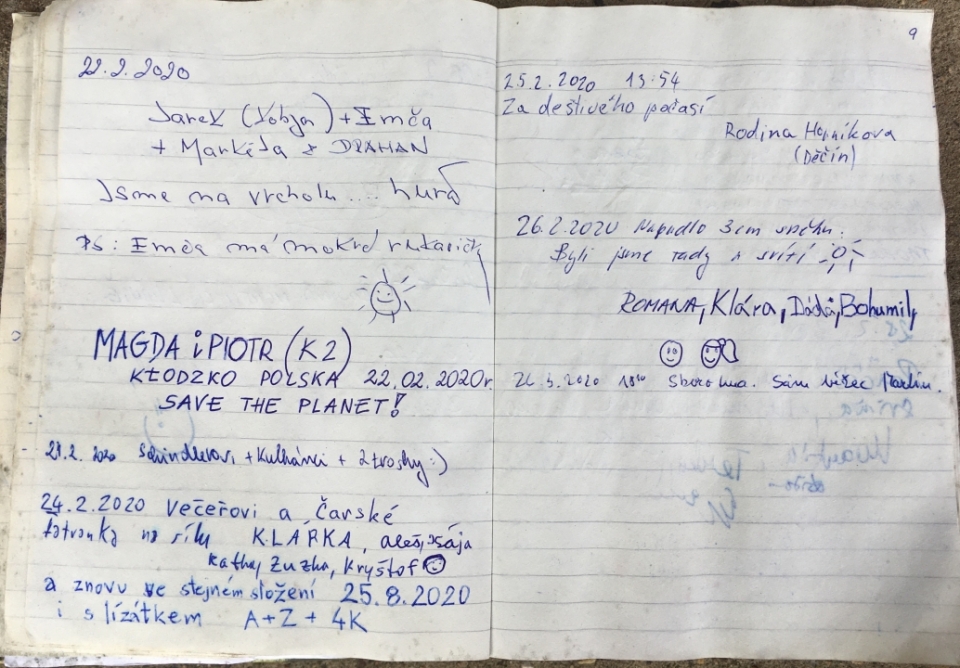 22.2.2020
Jarek (Kobja) + Emča
+ Markéta & DRAHAN
Jsme na vrcholu .... hurá
PS: Emča má mokré rukavičky
MAGDA i PIOTR (K2)
KŁODZKO POLSKA 22.02.2020r.
SAVE THE PLANET!
2020 Schindlerovi + Kulhánci + 2 trosky :)
24.2.2020 Večeřovi a Čarské
tatranka na sílu KLÁRKA, aleš,
Kathy, Zuzka, Kryštof
a znovu ve stejném složení 25.8.2020
i s lízátkem A+Z + 4K
9
25.2.2020 13:54
Za deštivého počasí
Rodina
(Děčín)
26.2.2020 Napadlo 3cm sněhu.
Byli jsme tady a svítí
ROMANA, Klára, Bohumily
2020 Sám běžec Martin.